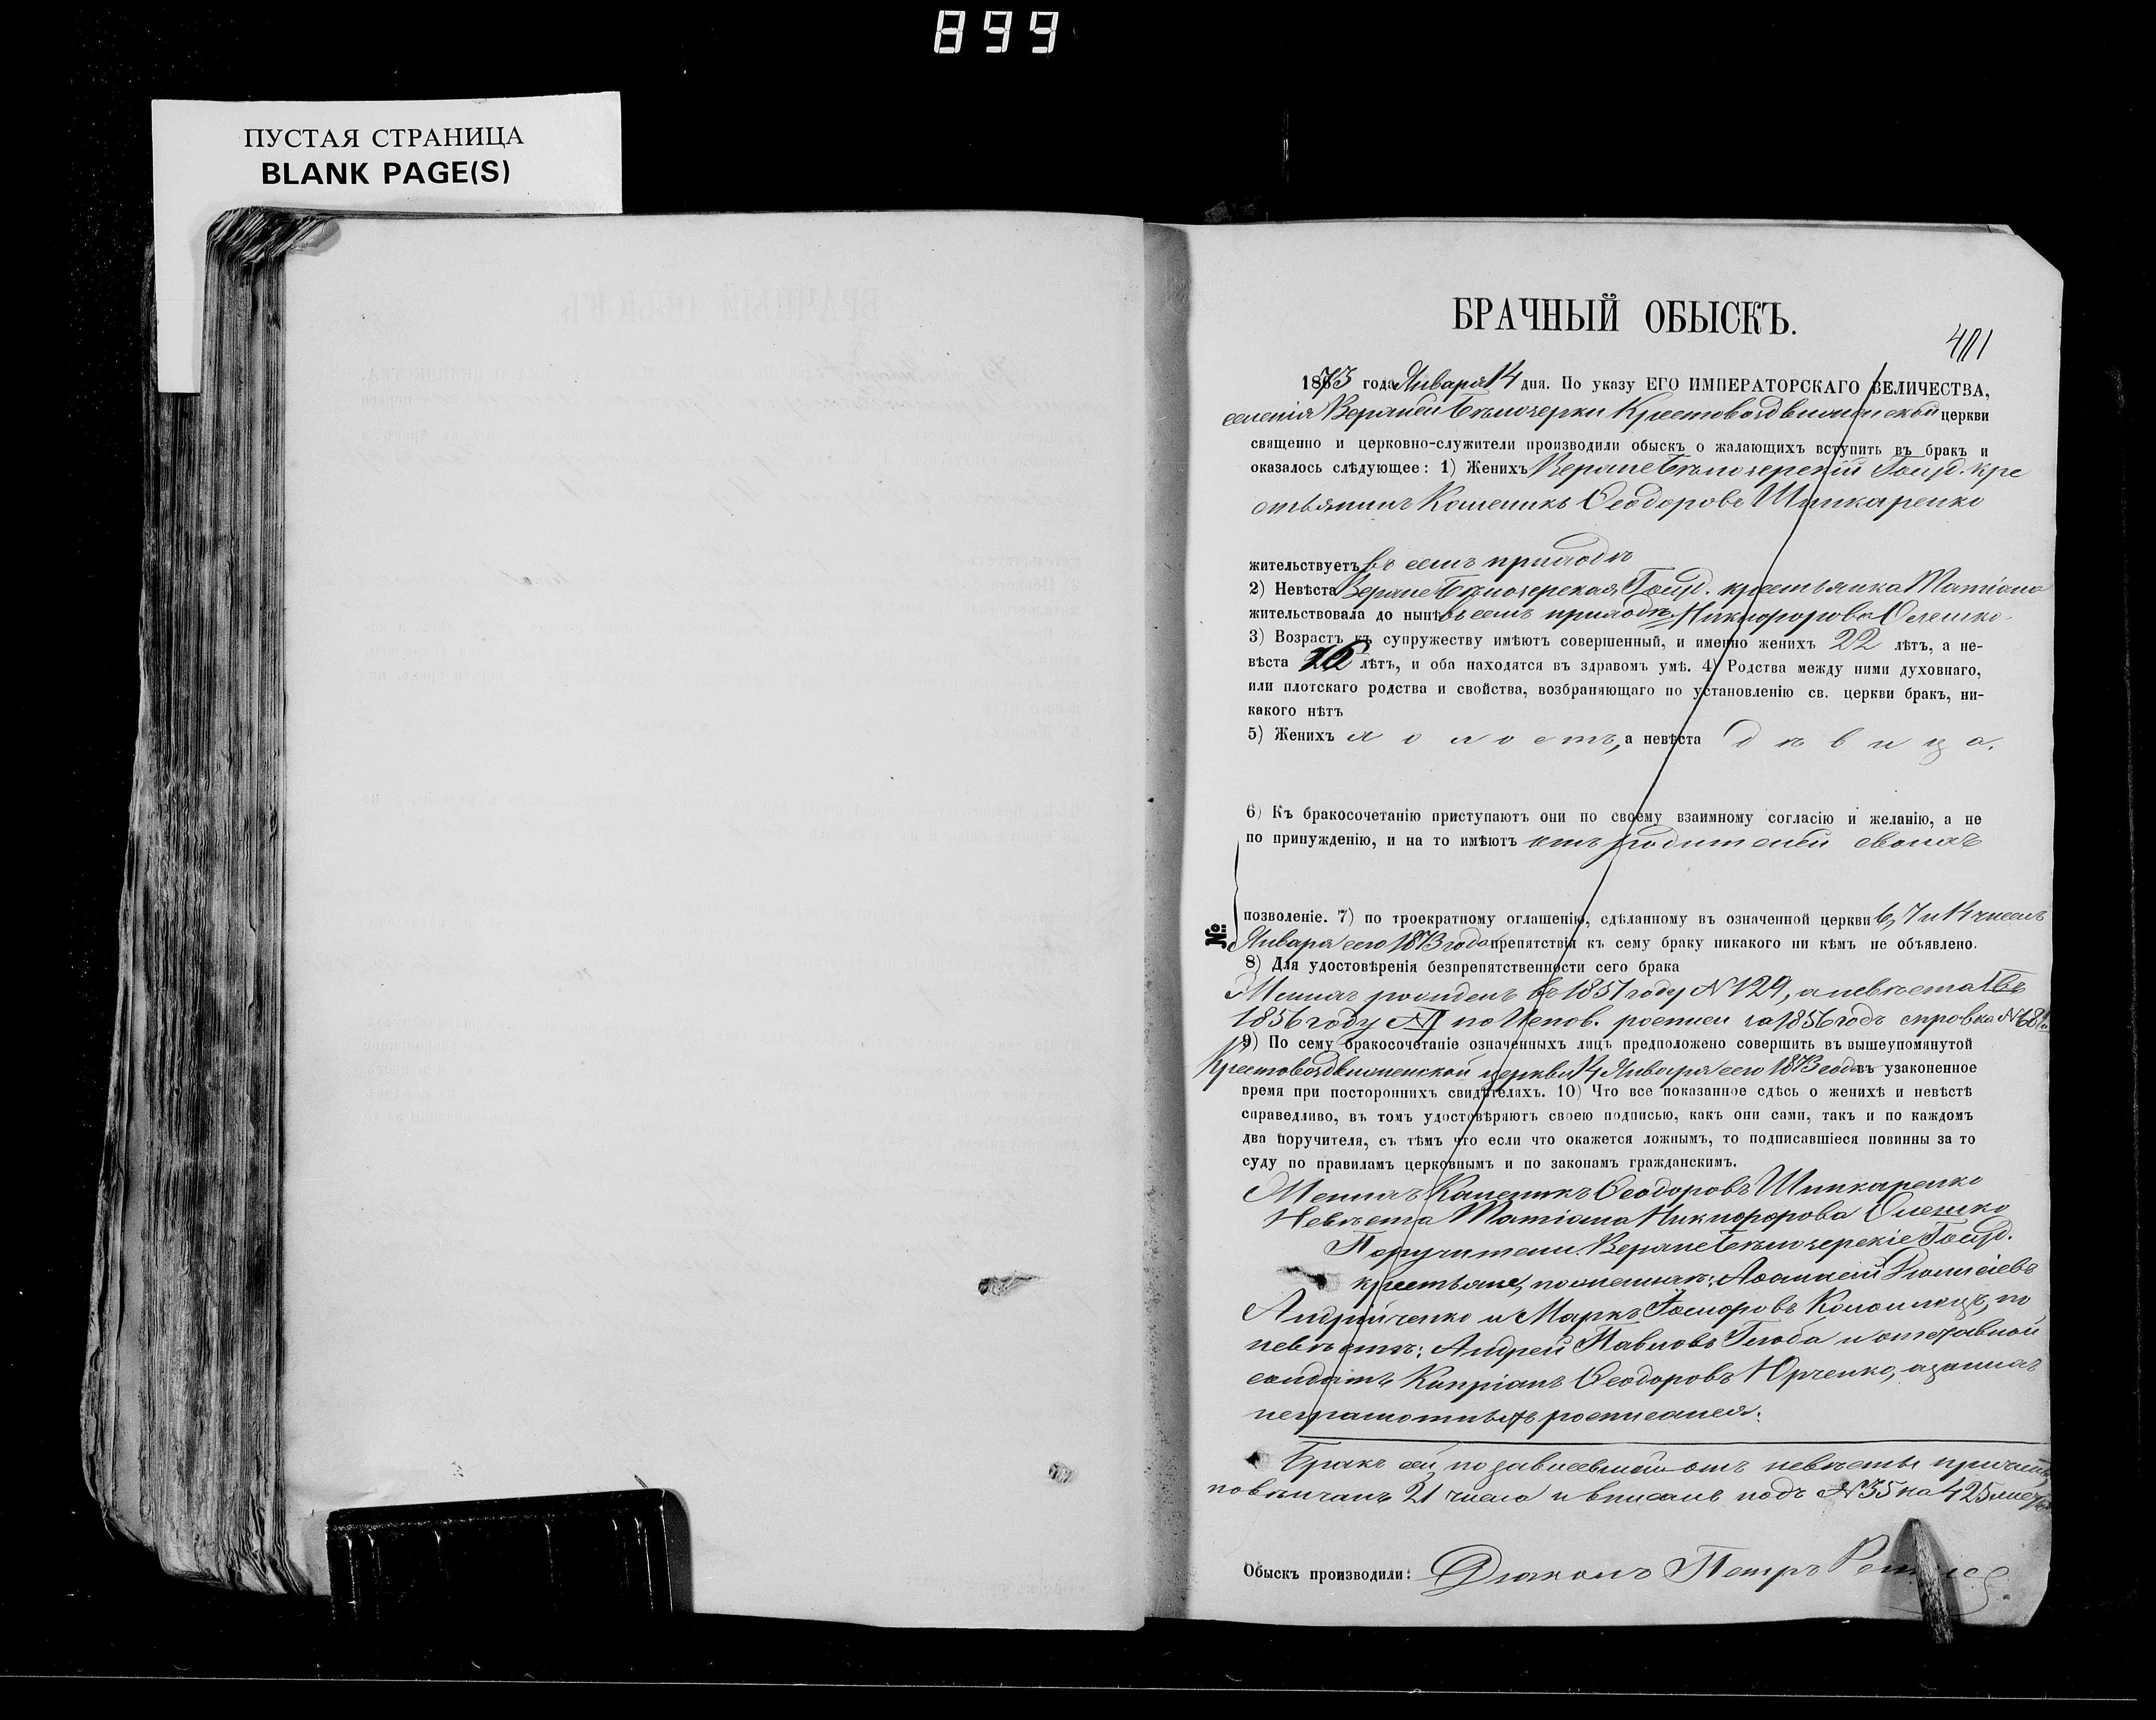 899
ПУСТАЯ СТРАНИЦА
BLANK PAGE(S)
БРАЧНЫЙ ОБЫСКЪ.
401
1873 года Января 14 дня. По указу ЕГО ИМПЕРАТОРСКАГО ВЕЛИЧЕСТВА,
селенія Верхней Бѣлозерки Крестовоздвиженской церкви
священно и церковно-служители производили обыскъ о жалающихъ вступить въ бракъ и
оказалось слѣдующее: 1) Женихъ Верхнебѣлозерскій Госуд. кре
стьянинъ Каленикъ Ѳеодоровъ Шинкаренко
жительствуетъ въ семъ приходѣ
2) Невѣста Верхнебѣлозерская Госуд. крестьянка Татіана
жительствовала до нынѣ въ семъ приходѣ Никифорова Олешко.
3) Возрастъ къ супружеству имѣютъ совершенный, и именно женихъ 22 лѣтъ, а не-
вѣста 16 лѣтъ, и оба находятся въ здравомъ умѣ. 4) Родства между ними духовнаго,
или плотскаго родства и свойства, возбраняющаго по установленію св. церкви бракъ, ни-
какого нѣтъ
5) Женихъ холостъ, а невѣста дѣвица.
6) Къ бракосочетанію приступаютъ они по своему взаимному согласію и желанію, а не
по принужденію, и на то имѣютъ отъ родителей своихъ
позволеніе. 7) по троекратному оглашенію, сдѣланному въ означенной церкви 6, 7 и 14 числъ
№ Января сего 1873 года препятствія къ сему браку никакого ни кѣмъ не объявлено.
8) Для удостовѣренія безпрепятственности сего брака
Женихъ рожденъ въ 1851 году № 129, а невѣста въ
1856 году по Испов. росписи за 1856 годъ справка №
9) По сему бракосочетаніе означенныхъ лицъ предположено совершить въ вышеупомянутой
Крестовоздвиженской церкви 14 Января сего 1873 года въ узаконенное
время при постороннихъ свидѣтеляхъ. 10) Что все показанное сдѣсь о женихѣ и невѣстѣ
справедливо, въ томъ удостовѣряютъ своею подписью, какъ они сами, такъ и по каждомъ
два поручителя, съ тѣмъ что если что окажется ложнымъ, то подписавшіеся повинны за то
суду по правиламъ церковнымъ и по законамъ гражданскимъ.
Женихъ Каленикъ Ѳеодоровъ Шинкаренко
Невѣста Татіана Никифорова Олешко
Поручители: Верхнебѣлозерскіе Госуд.
крестьяне, по женихѣ:
Андрійченко и Маркъ Коломіецъ, по
невѣстѣ: Андрей Павловъ Глоба и отставной
солдатъ Кипріанъ Ѳеодоровъ Юрченко, а за нихъ
неграмотныхъ росписался:
Бракъ сей, по зависѣвшей отъ невѣсты причинѣ
повѣнчанъ 21 числа и вписанъ подъ № 35 на 425
Обыскъ производили: Діаконъ Петръ